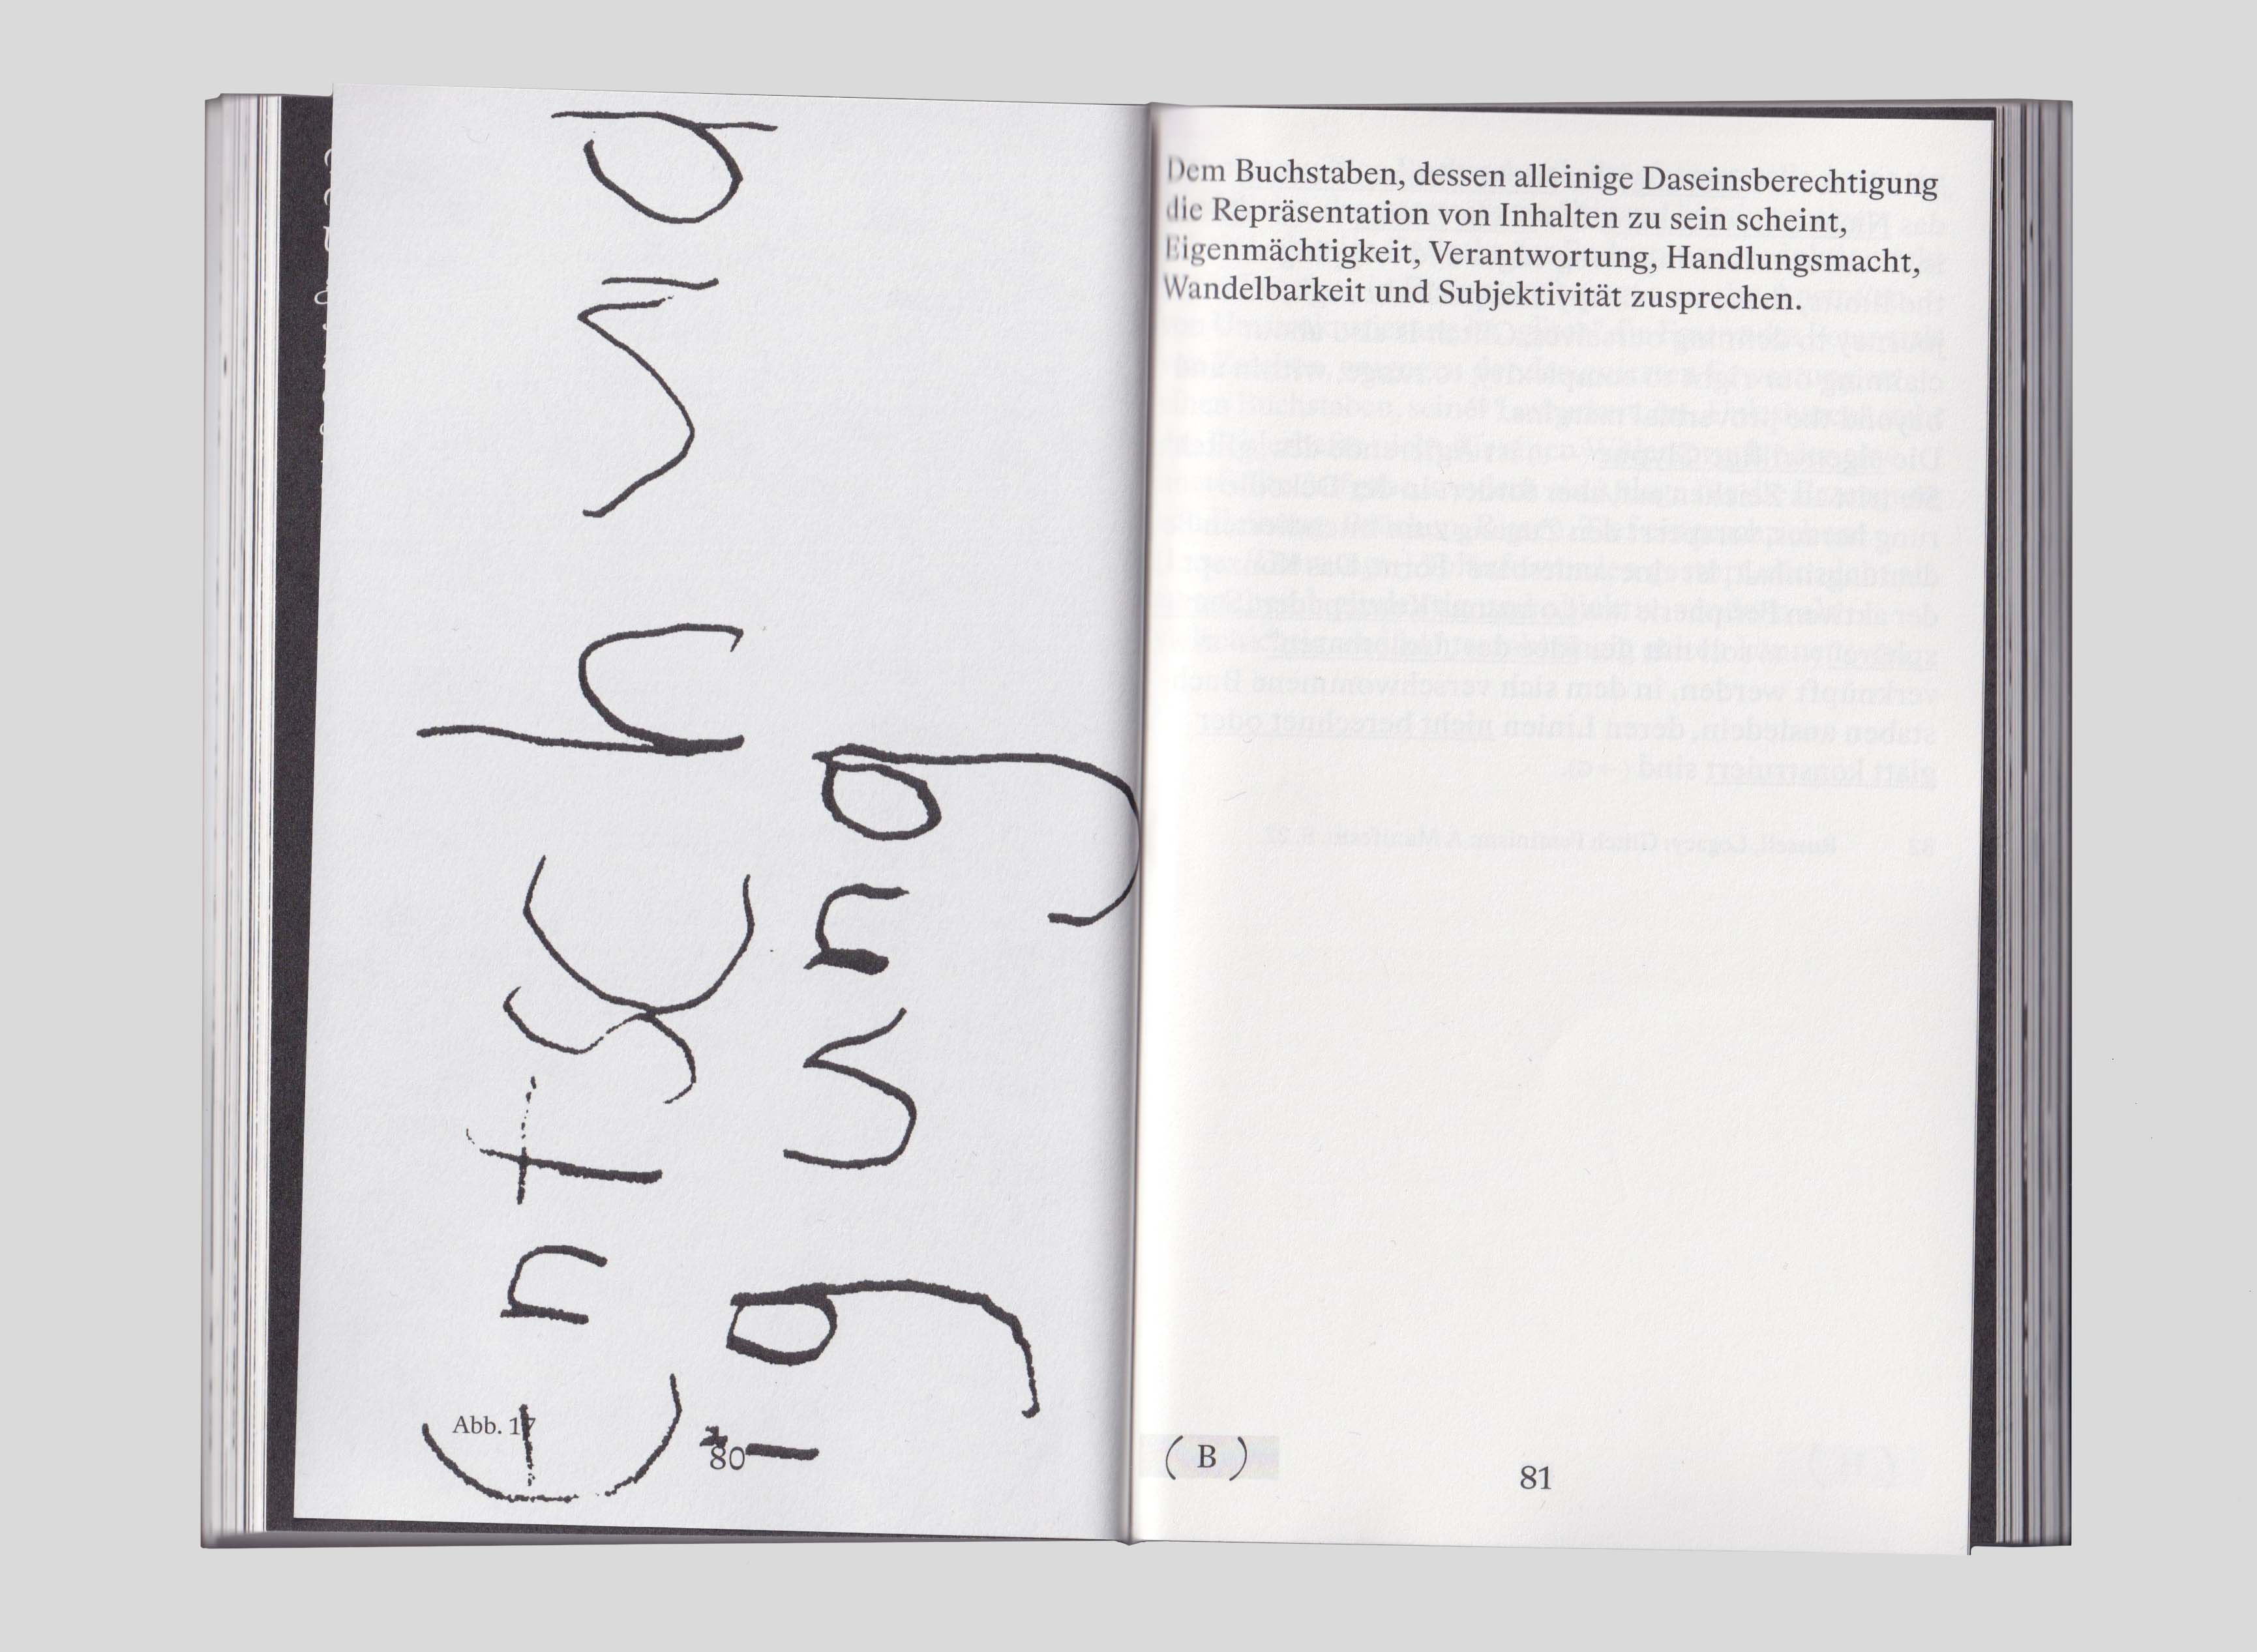 Entschuld
igung
Abb. 17
80
Dem Buchstaben, dessen alleinige Daseinsberechtigung
die Repräsentation von Inhalten zu sein scheint,
Eigenmächtigkeit, Verantwortung, Handlungsmacht,
Wandelbarkeit und Subjektivität zusprechen.
( B )
81